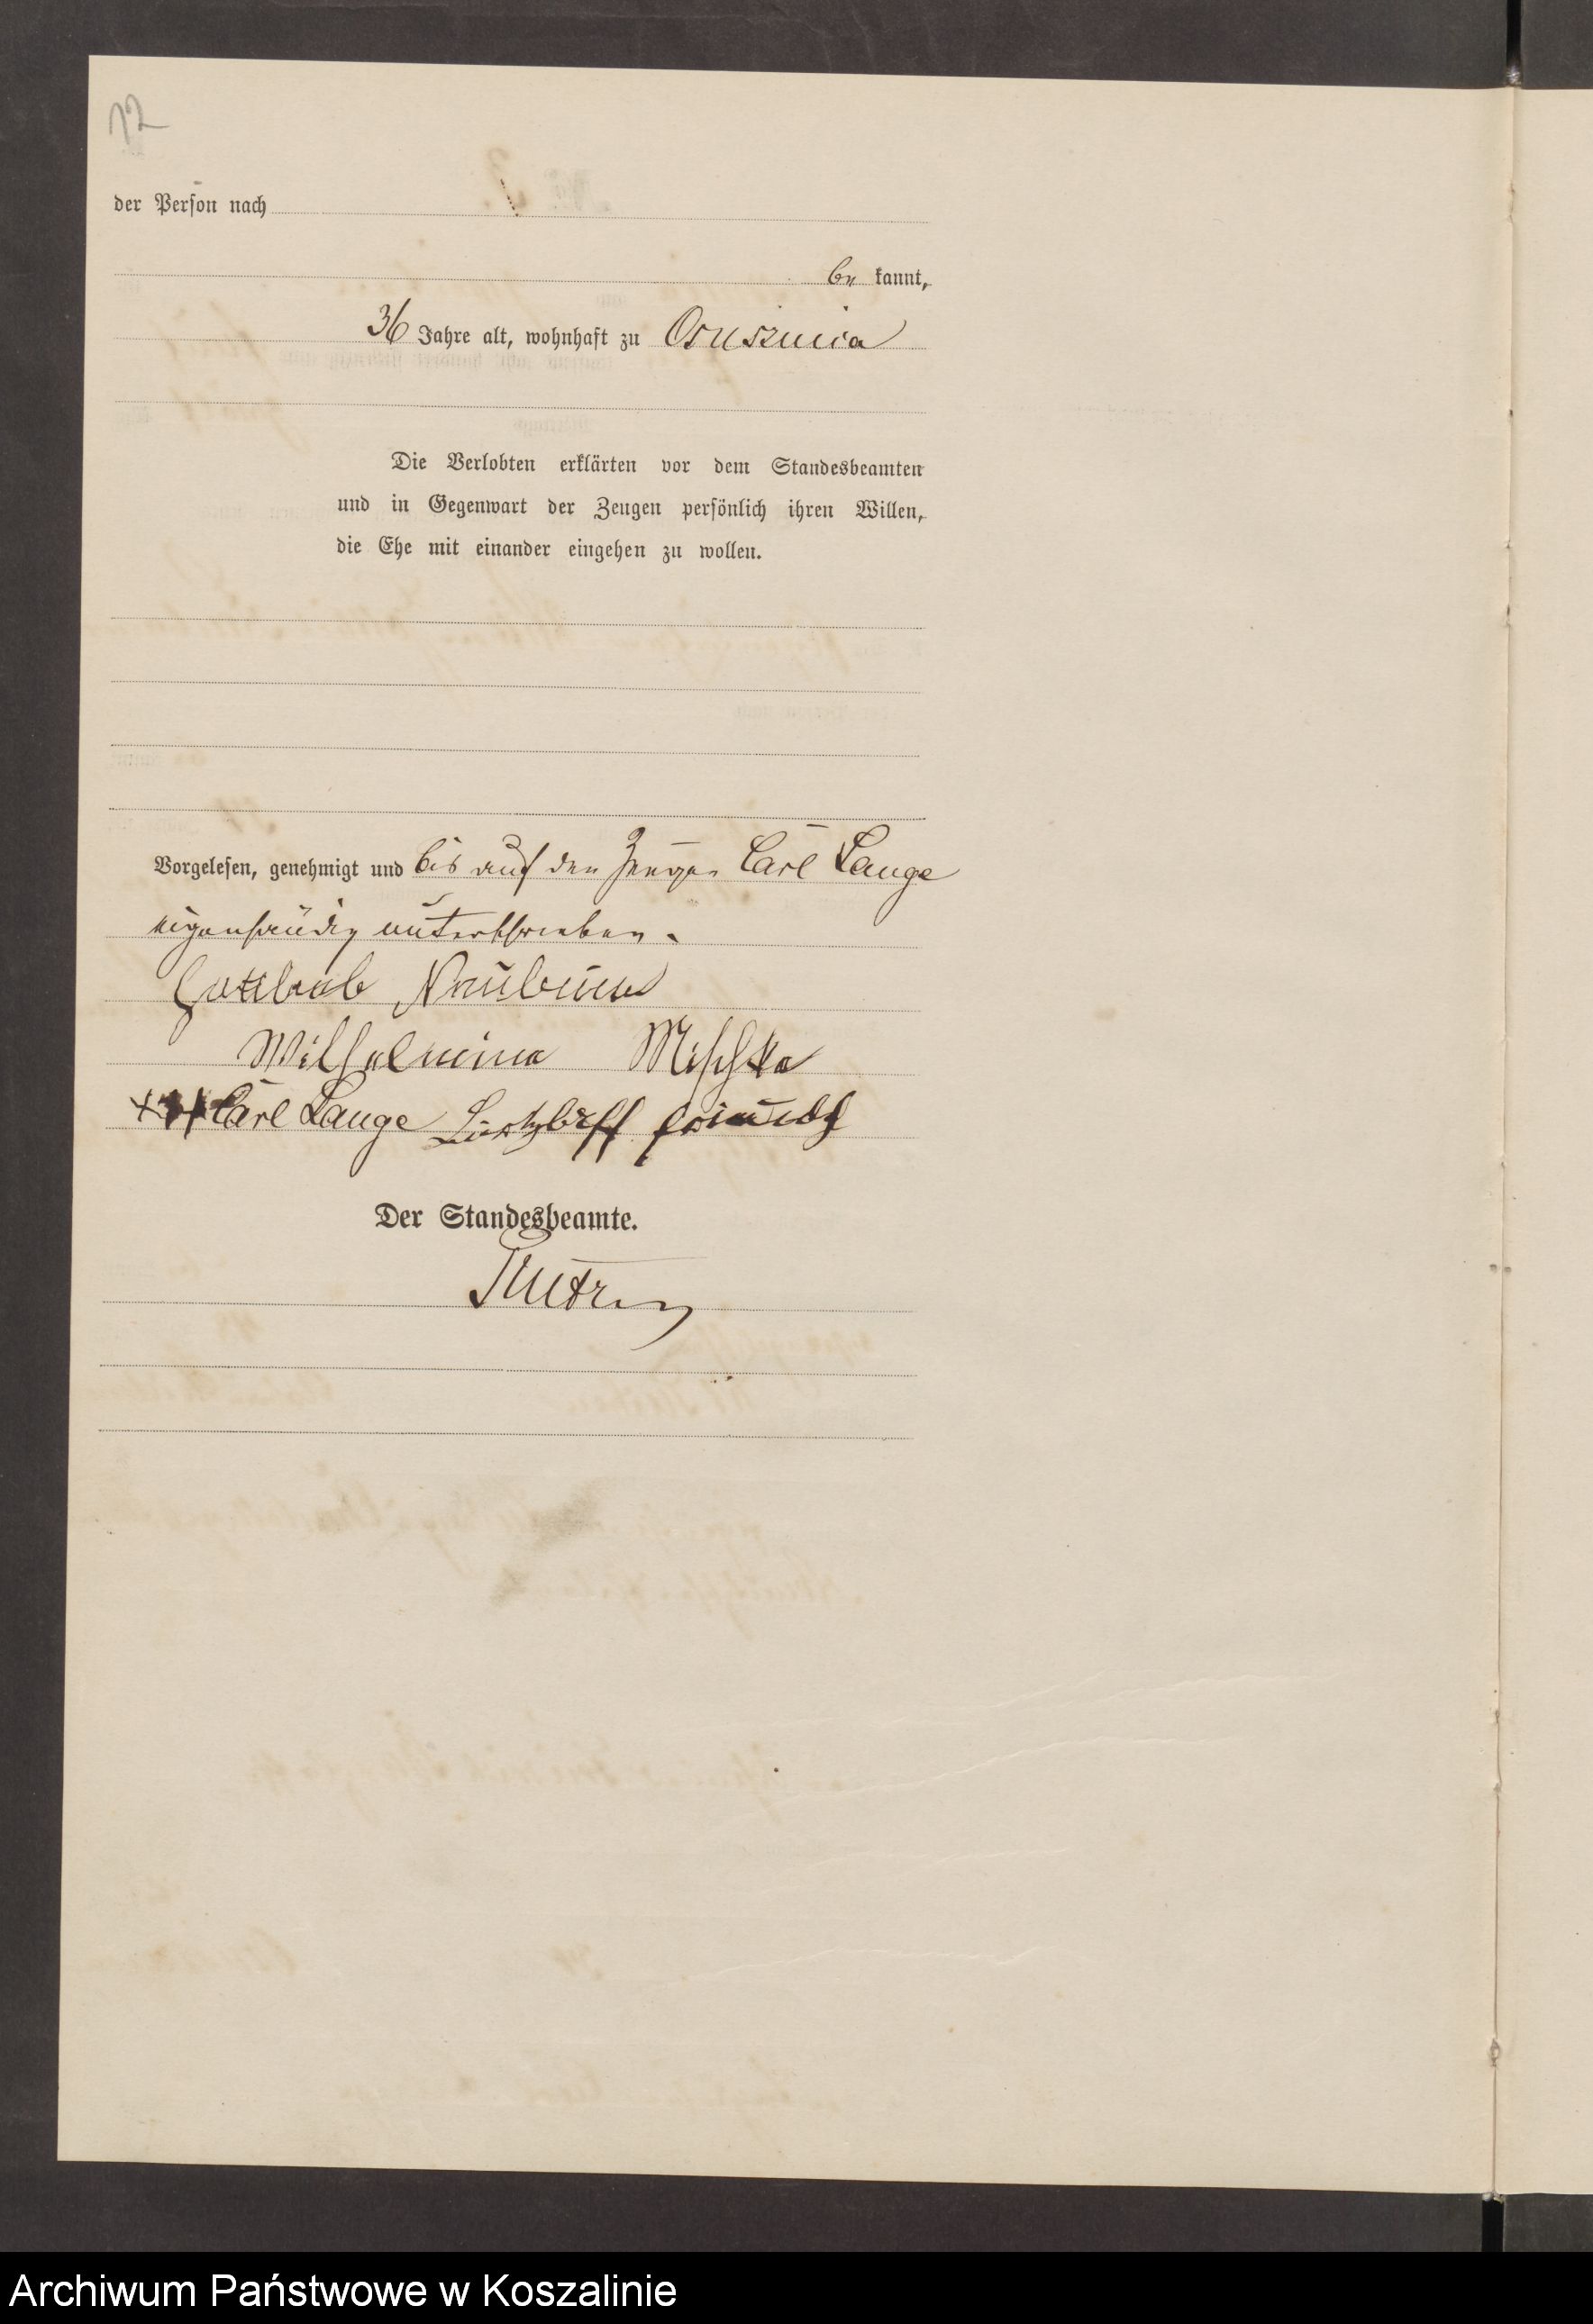 12
der Person nach
be kannt,
36 Jahre alt, wohnhaft zu Osusznica
Die Verlobten erklärten vor dem Standesbeamten
und in Gegenwart der Zeugen persönlich ihren Willen,
die Ehe mit einander eingehen zu wollen.
Vorgelesen, genehmigt und bis auf den Zeugen Carl Lange
eigenhändig unterschrieben.
Gottlieb
Wilhelmine Mischke
+++ Carl Lange
Der Standesbeamte.
Archiwum Państwowe w Koszalinie